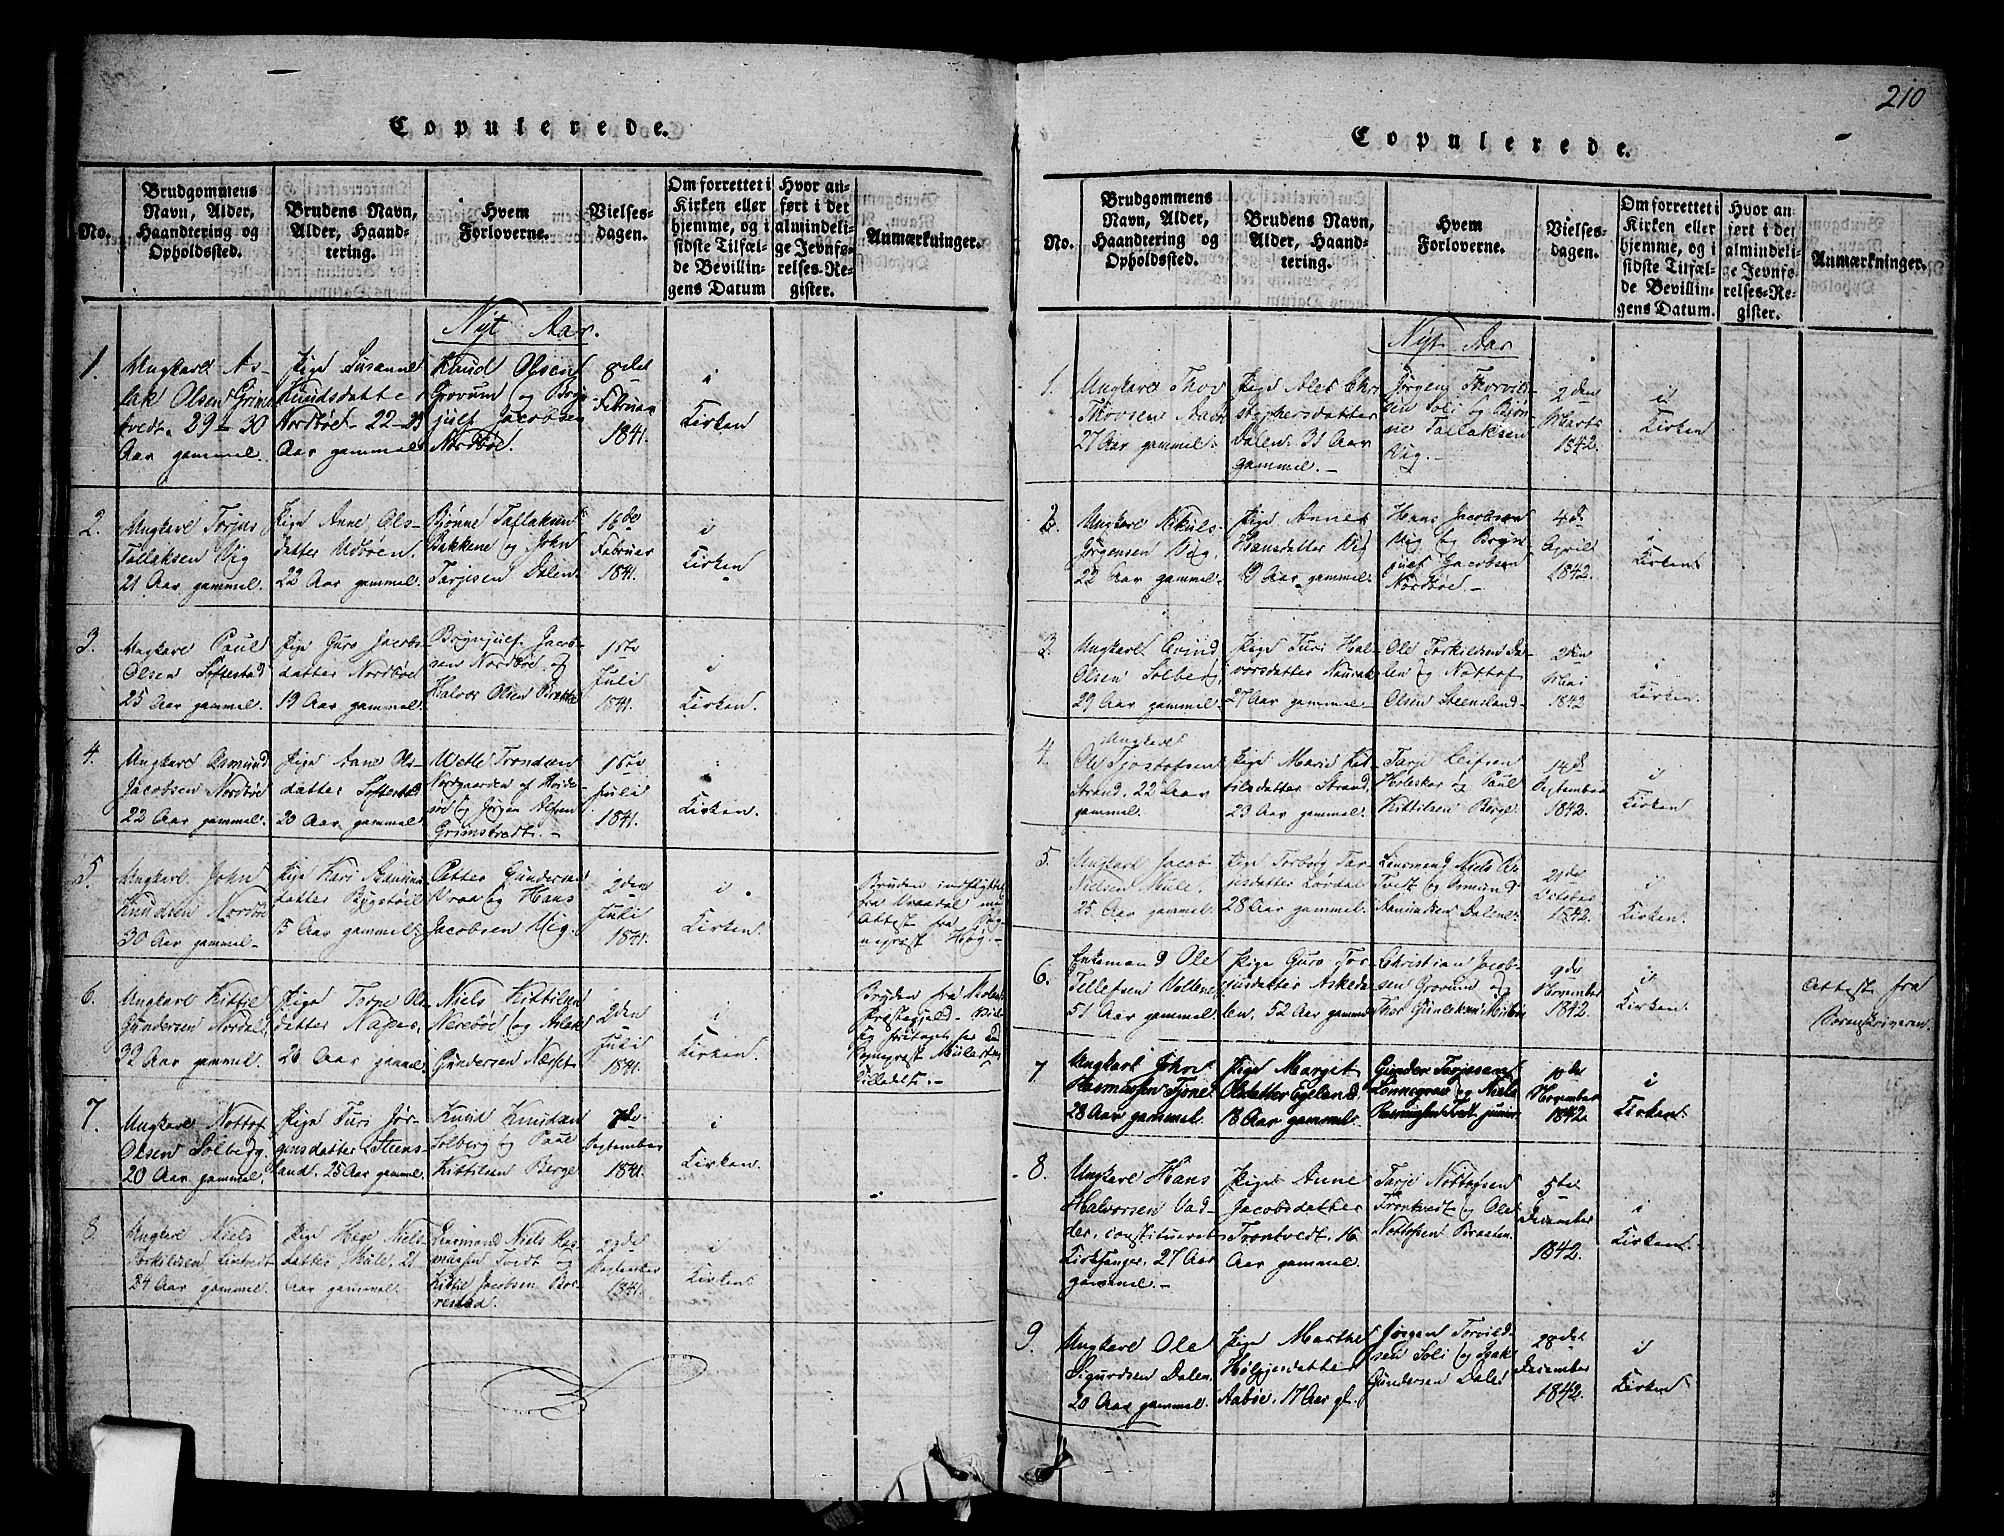 Copulerede.
No.
Brudgommens
Navn, Alder,
Haandtering og
Opholdssted.
Brudens Navn,
Alder, Haand-
tering.
Hvem
Forloverne.
Vielses-
dagen.
Om forrettet i
Kirken eller
hjemme, og i
sidste Tilfæl-
de Bevillin-
gens Datum
Hvor an-
ført i det
almindeli-
ge Jevnfø-
relses-Re-
gister.
Anmærkninger.
Nyt Aar.
1.
Ungkarl As-
lak Olsen
29-30
Aar gammel.
Pige Susanne
Knudsdatter
Nordbøe 22-23
Aar gammel
Knud Olsen
Grovum og
Jacobsen
Nordbøe.
8de
Februar
1841.
i
Kirken
2.
Ungkarl Torjus
Tallaksen Vig
21 Aar gammel
Pige Anne Ols-
datter Udbøen.
22 Aar gammel.
Bjønne Tallaksen
Bakkene og John
Tarjesen Dalen
16de
Februar
1841.
i
Kirken
3.
Ungkarl Paul
Olsen Loftestad
25 Aar gammel.
Pige Guro Jacobs-
datter Nordbøe
19 Aar gammel.
Brynjulf Jacob-
sen Nordbøe og
Halvor Olsen
1ste
Juli
1841.
i
Kirken.
4.
Ungkarl Asmund
Jacobsen Nordbøe
22 Aar gammel.
Pige Anne Ols-
datter Loftestad
20 Aar gammel
Wetle Tronsen
Nordgaarden af
og Jørgen
Grimstvedt.-
1ste
Juli
1841.
i
Kirken.
5.
Ungkarl John
Knudsen
30 Aar gammel-
Pige Kari
datter Bygstøil
Aar gammel.
Petter Gundersen
Vraa og Hans
Jacobsen Vig.
2den
Juli
1841.
i
Kirken.
Bruden indflyttet
fra Vraadal med
Attest fra Sog-
neprest Høg.-
6.
Ungkarl Kittil
Gundersen Nordal,
32 Aar gammel.
Pige Torje Ols-
datter
26 Aar gammel
Niels Kittilsen
Nerebøe og Aslak
Gundersen Næset
2den
Juli
1841.
i
Kirken.
Bruden fra
7.
Ungkarl Nottof
Olsen Solberg.
20 Aar gammel.
Pige Turi Jør-
gensdatter Steens-
land. 25 Aar gammel.
Knud Knudsen
Solberg og Paul
Kittilsen Berge
7de
September
1841.
i
Kirken.
8.
Ungkarl Niels
Torkildsen
34 Aar gammel.
Pige Hege Niels-
datter Mule. 21
Aar gammel.
Lensmand Niels Ras-
mussen Tvedt og
Kittil Jacobsen Bor-
restad.
September
1841.
i
Kirken.
210
Copulerede.
No.
Brudgommens
Navn, Alder,
Haandtering og
Opholdssted.
Brudens Navn,
Alder, Haand-
tering.
Hvem
Forloverne.
Vielses-
dagen.
Om forrettet i
Kirken eller
hjemme, og i
sidste Tilfæl-
de Bevillin-
gens Datum.
Hvor an-
ført i det
almindeli-
ge Jevnfø-
relses-Re-
gister.
Anmærkninger.
Nyt Aar
1.
Ungkarl Thor
Thorsen
27 Aar gammel.
Pige Alet Chri-
stophersdatter
Dalen. 31 Aar
gammel.-
Jørgen Thorvild-
sen Soli og Bjøn-
ne Tallaksen
Vig.-
2den
Marts
1842.
i
Kirken
2.
Ungkarl Nikuls
Jørgensen Vig.
22 Aar gammel.
Pige Anne
Hansdatter Vig
19 Aar gammel.
Hans Jacobsen
Vig og Bryn-
julf Jacobsen
Nordbøe.-
4de
April
1842.
i
Kirken
3.
Ungkarl Evind
Olsen Solberg,
29 Aar gammel
Pige Turi Hal-
vorsdatter
27 Aar gammel.
Ole Torkildsen Da-
len og Nottof
Olsen Steensland
2den
Mai
1842
i
Kirken.
4.
Ungkarl
Ole Tjostofsen
Strand. 22 Aar
gammel.
Pige Marie Kit-
tilsdatter Strand,
23 Aar gammel.
Tarje Leifsen
og Paul
Kittilsen Berge.
14de
September
1842.
i
Kirken
5.
Ungkarl Jacob
Nielsen Mule.
25. Aar gammel.
Pige Torborg Tar-
jesdatter Lørdal
28 Aar gammel.
Lensmand Niels
Tvedt og Osmund
Dalen.
21de
October
1842.
i
Kirken.
6.
Enkemand Ole
Tellefsen Vollene
51 Aar gammel.
Pige Guro Tor-
jusdatter Askeda-
len, 52 Aar gammel
Christian Jacob-
sen Grovum og
Thor Gunleksen
9de
November
1842.
i
Kirken.
Attest fra
7
Ungkarl John
Rasmussen
28 Aar gammel.
Pige Margit
Olsdatter Egeland
18 Aar gammel.
Gunder Tarjesen
Lønnegrav og Niels
Rasmussen Tvedt junior
10de
November
1842.
i
Kirken.
8.
Ungkarl Hans
Halvorsen Vad-
der, constitueret
Kirksanger. 27 Aar
gammel-
Pige Anne
Jacobsdatter
Trontvedt. 16
Aar gammel.
Tarje Nottofsen
Trontvedt og Ole
Nottofsen Braaten.
5te
December
1842.
i
Kirken.
9.
Ungkarl Ole
Sigurdsen Dalen.
20 Aar gammel.
Pige Marthe
Hølgjesdatter
Aabøe. 17 Aar gl.
Jørgen Torvild-
sen Soli og Isak
Gundersen Dale
28de
December
1842.
i
Kirken